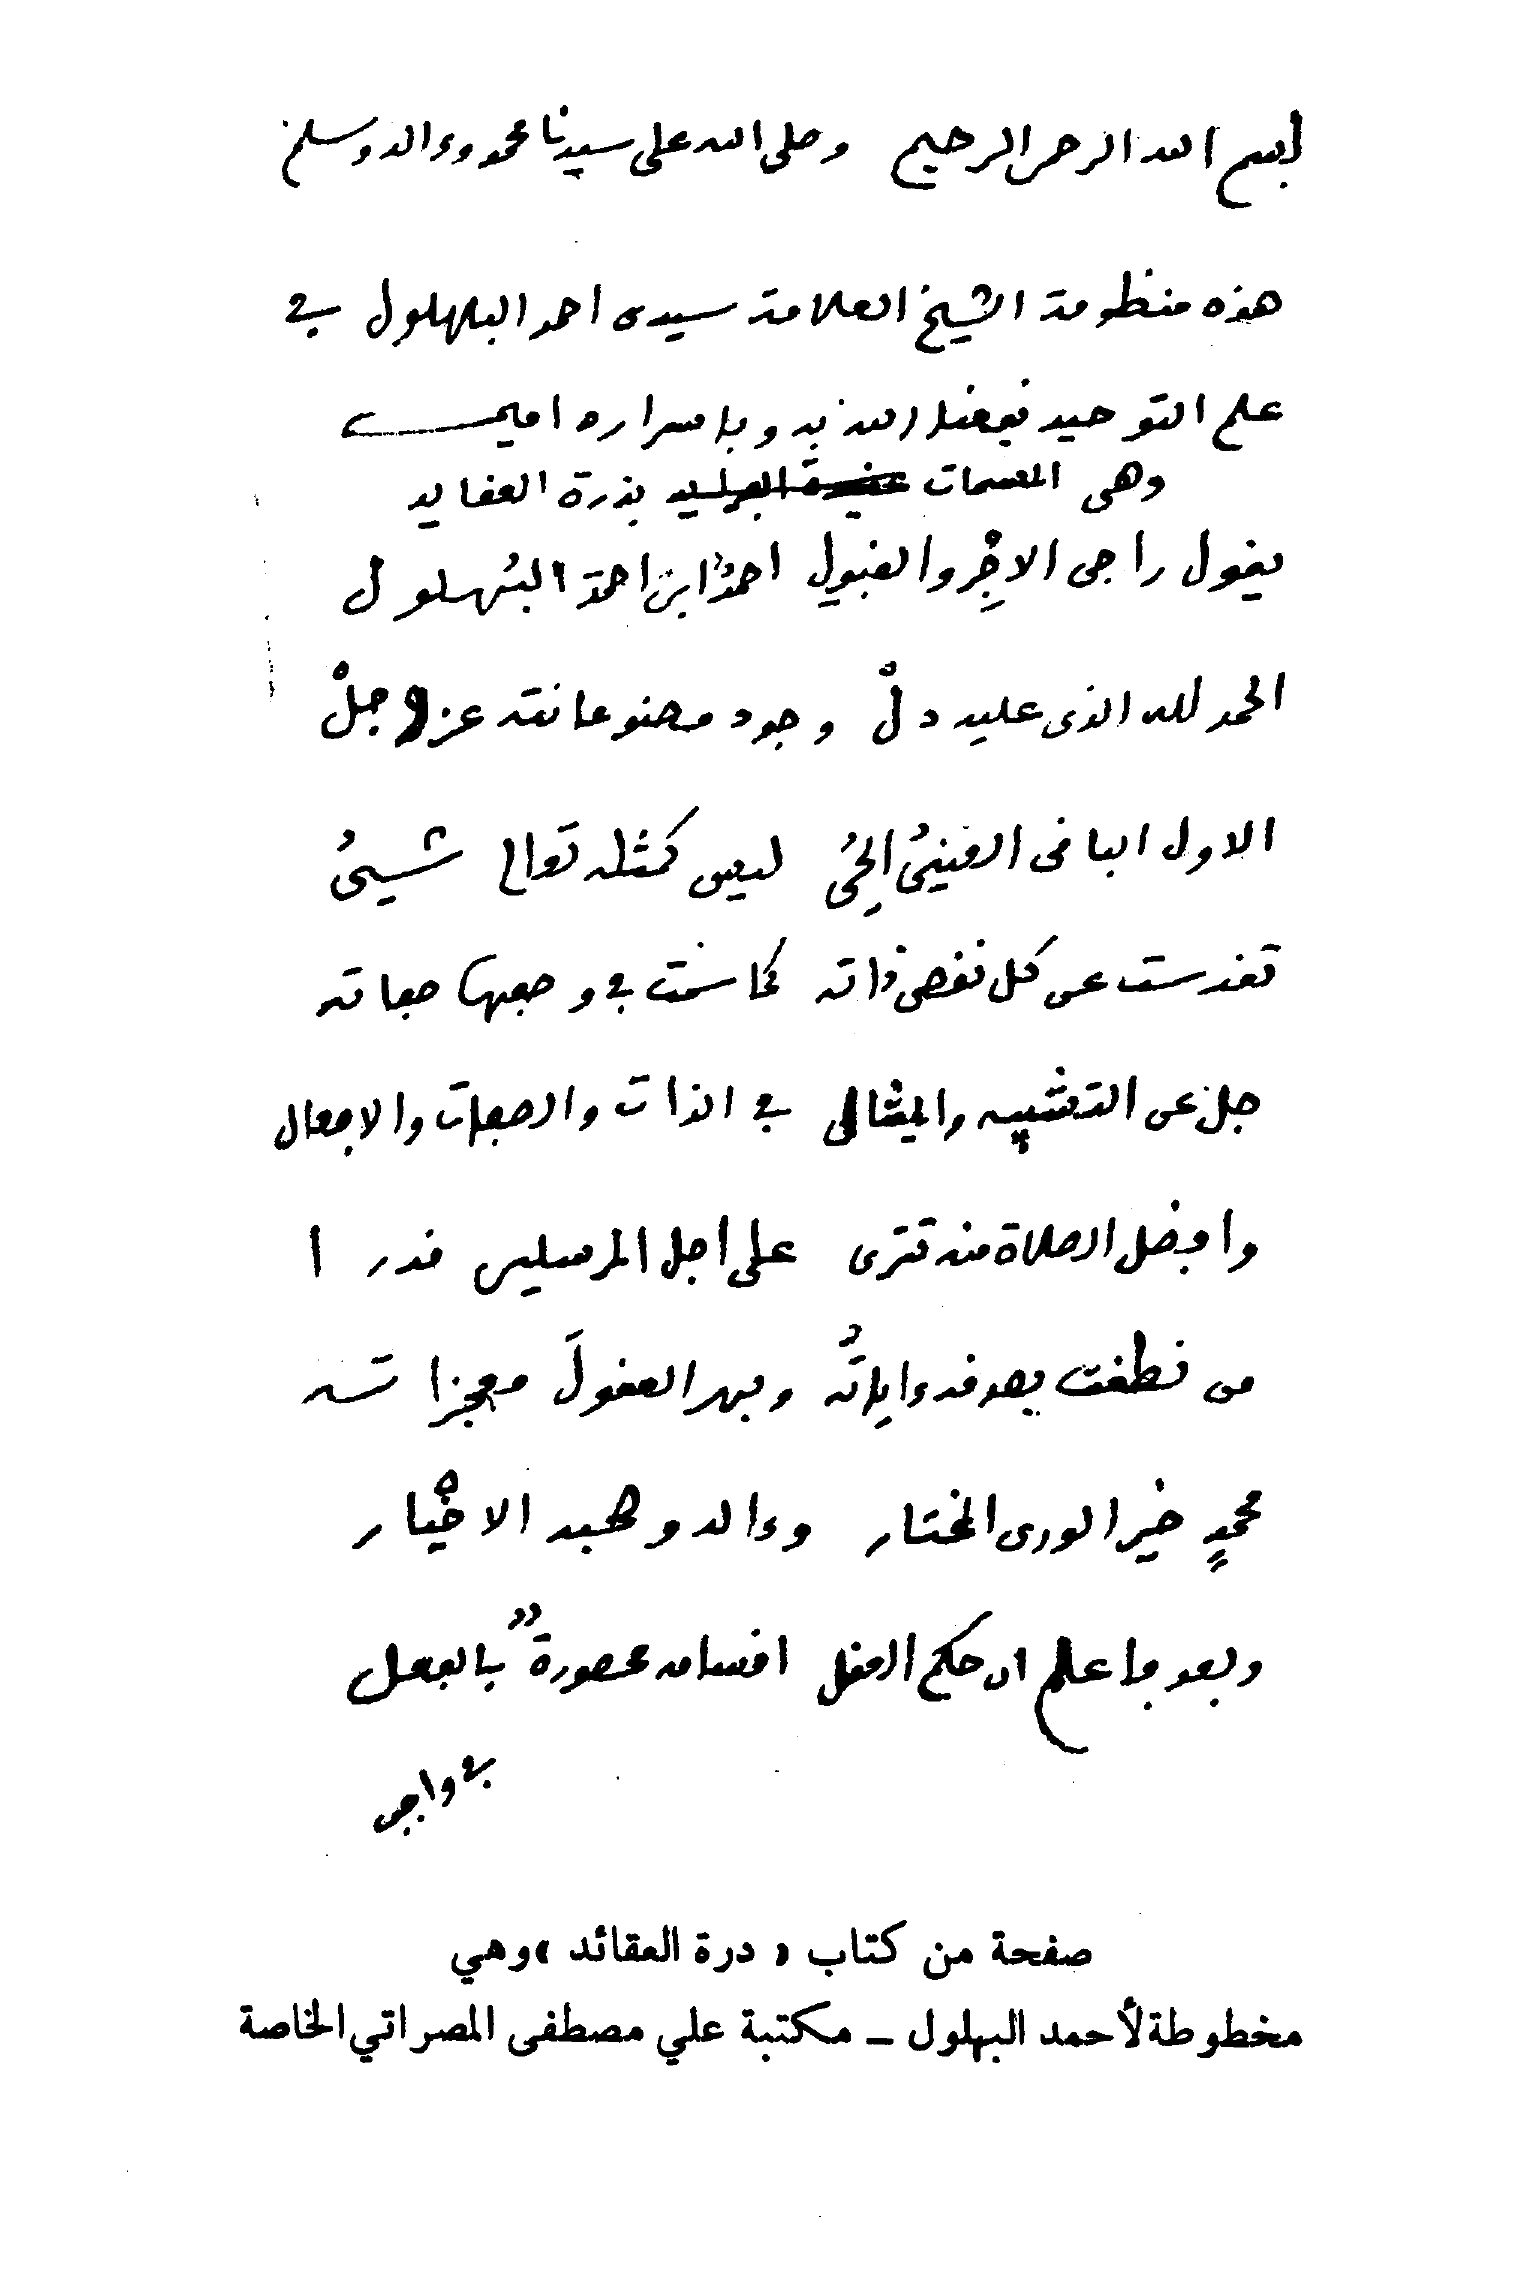 بسم الله الرحمن الرحيم وصلى الله على سيدنا محمد وءاله وسلم
هذه منظومة الشيخ العلامة سيدى احمد البهلول في
علم التوحيد نفعنا الله به وباسراره امين
وهى المسمات بدرة العقايد
يقول راجى الاجر والقبول احمد ابن احمد البهلول
الحمد لله الذى عليه دل وجود مصنوعاته عز وجل
الاول الباقى الغنيُ الحيُ ليس كمثله تعالى شيئُ
تقدست عن كل نقص ذاته كما سمت في وصفها صفاته
جل عن التشبيه والمثال في الذات والصفات والافعال
وافضل الصلاة منه تترى على اجل المرسلين قدرا
من نطقت بصدقه ءاياتهُ وبهر العقولَ معجزاته
محمدٍ خير الورى المختار وءاله وصحبه الاخْيار
وبعد فاعلم ان حكم العقل اقسامه محصورةٌ بالفعل
في واجب
صفحة من كتاب « درة العقائد » وهي
مخطوطة لأحمد البهلول - مكتبة علي مصطفى المصراتي الخاصة